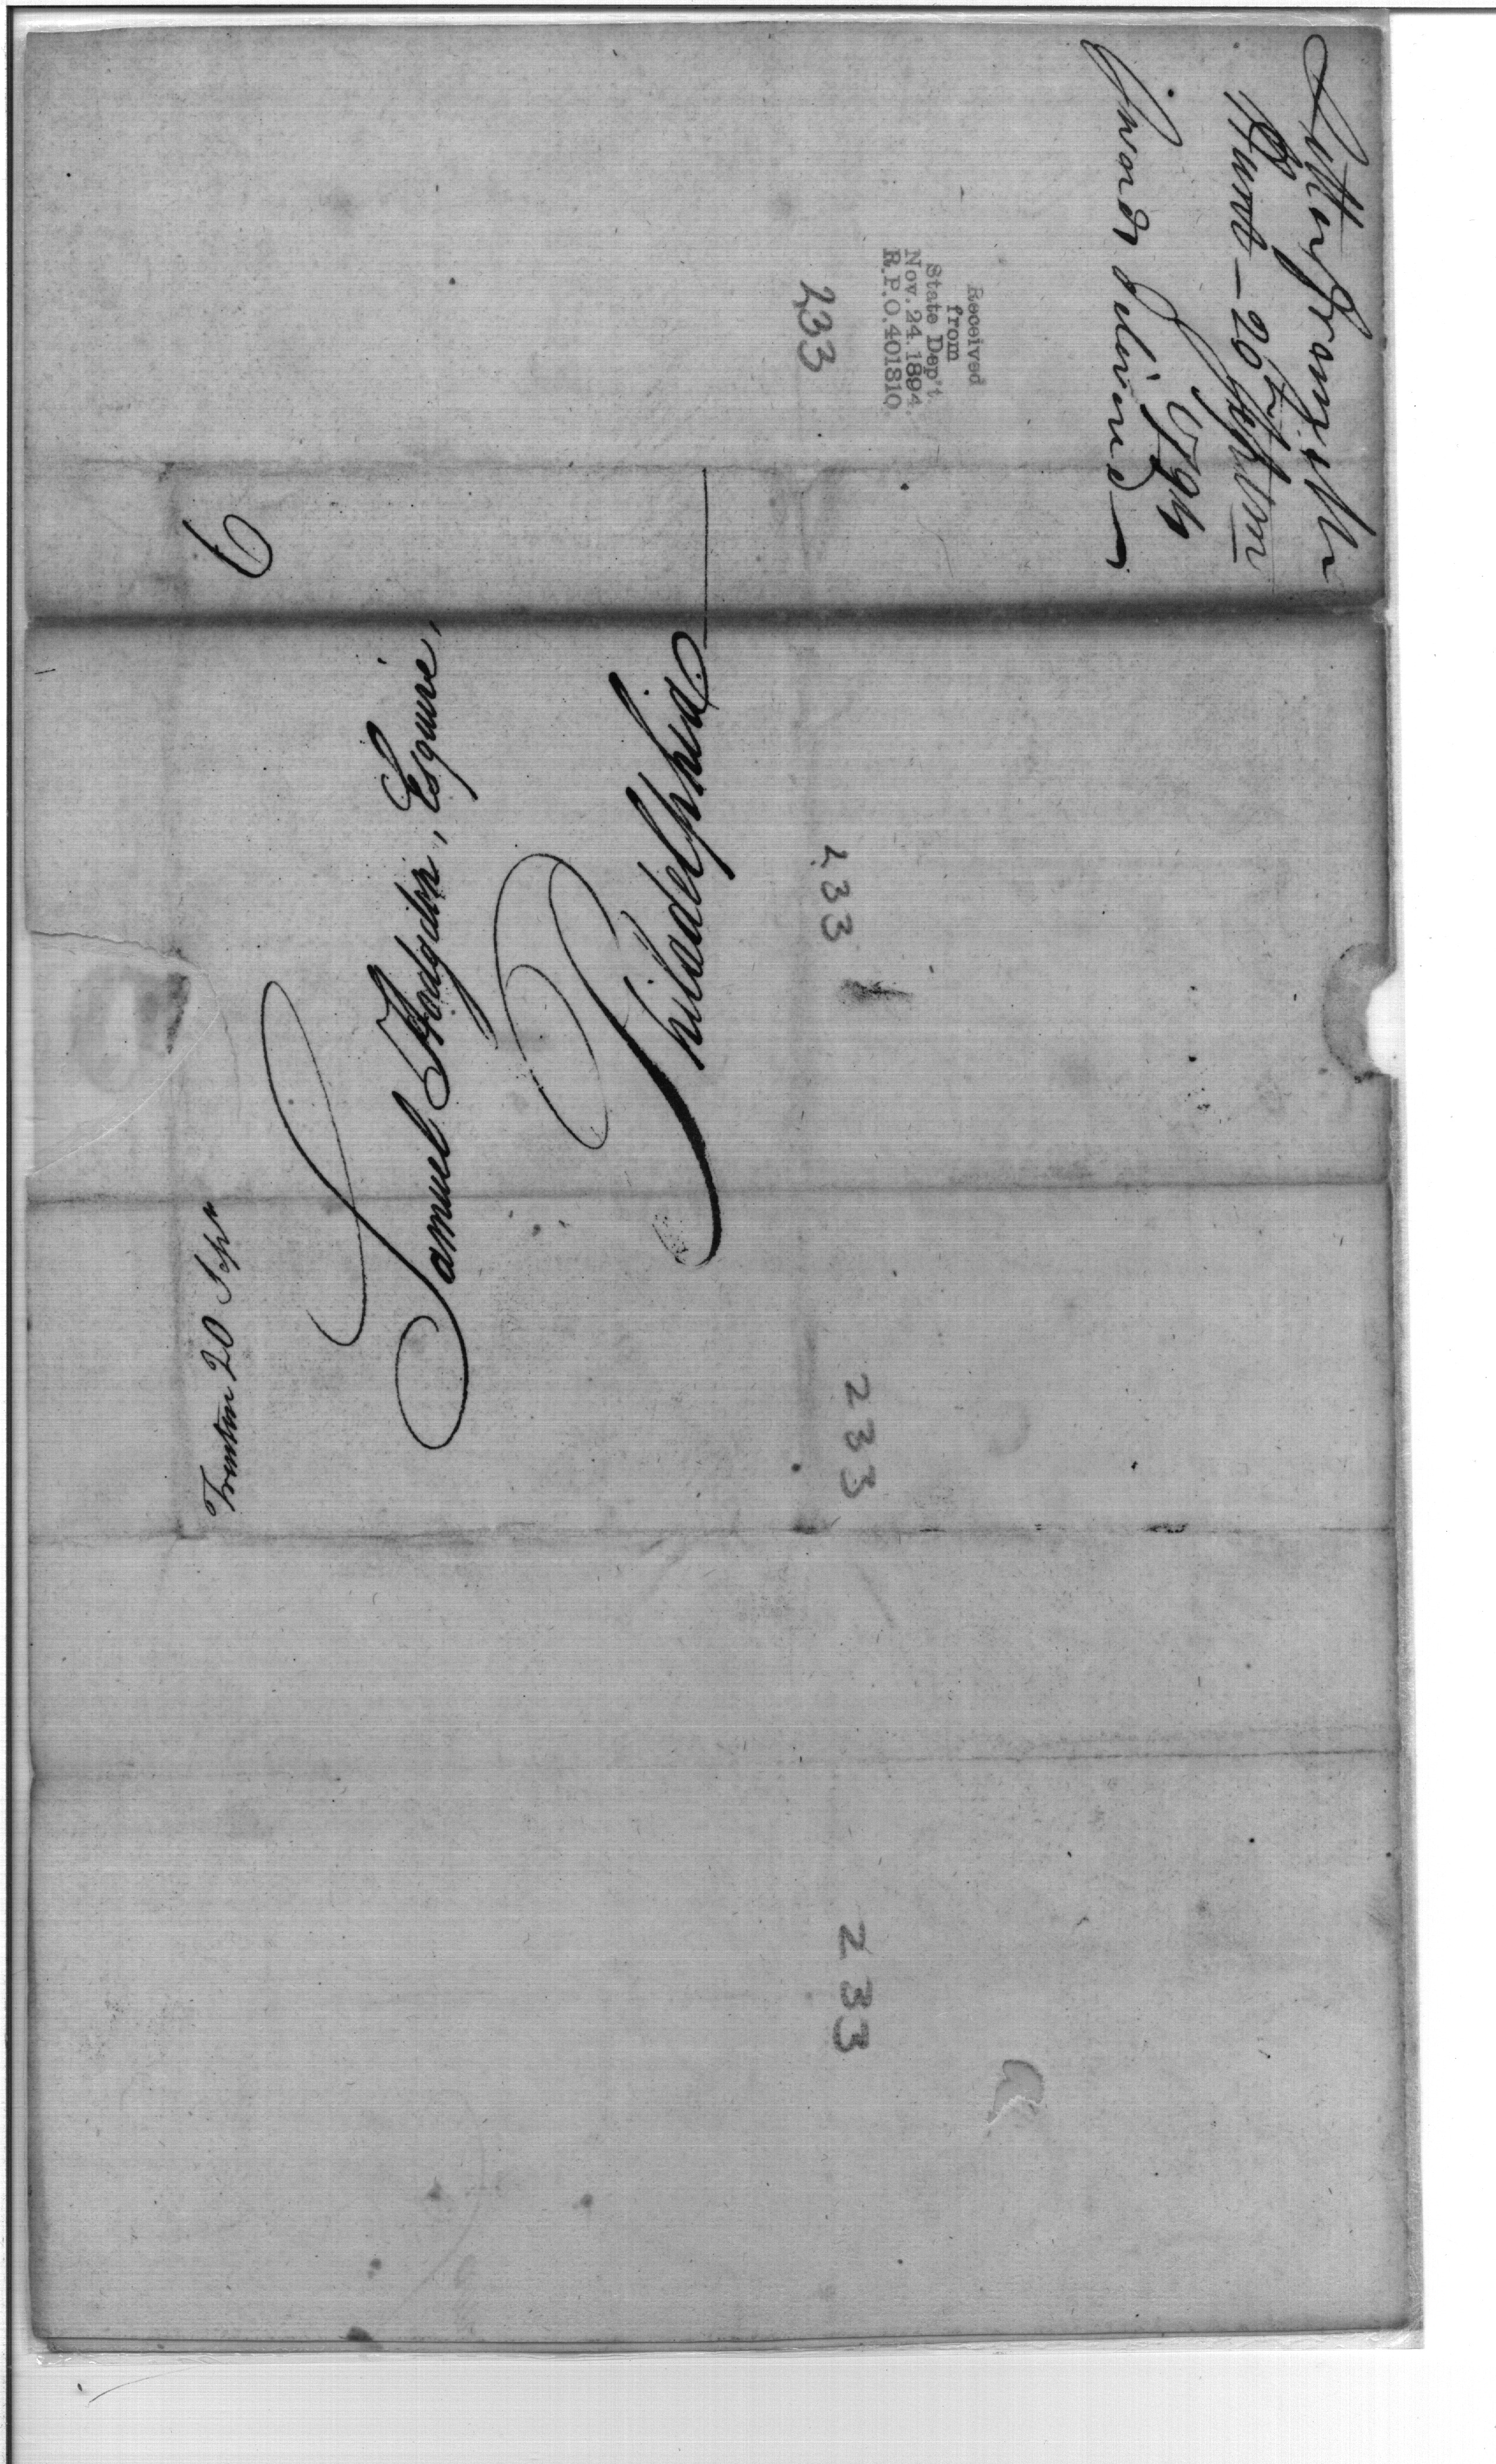 Letter from Mr
Hunt - 20th Septem
1794
Swords deliver'd
Received
from
State Dep't
Nov. 24. 1894.
R.P.O. 401810.
233
6
Trenton 20 Sepr
Samuel Hodgdon, Esquire,
Philadelphia
233
233
233